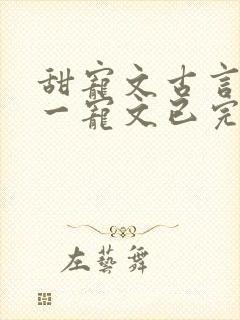 甜寵文古言
一寵文已完
左藝舞